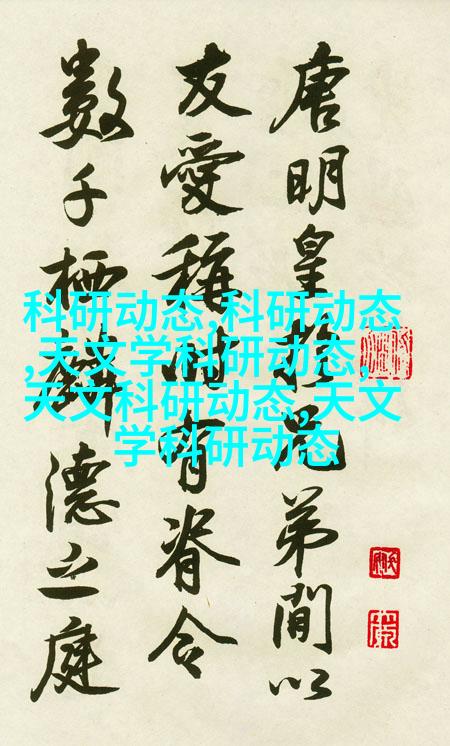 唐明皇於兄弟間以
友愛稱時有脊令
數千栖麟德之庭
科研动态,科研动态
,天文学科研动态,
天文科研动态,天文
学科研动态